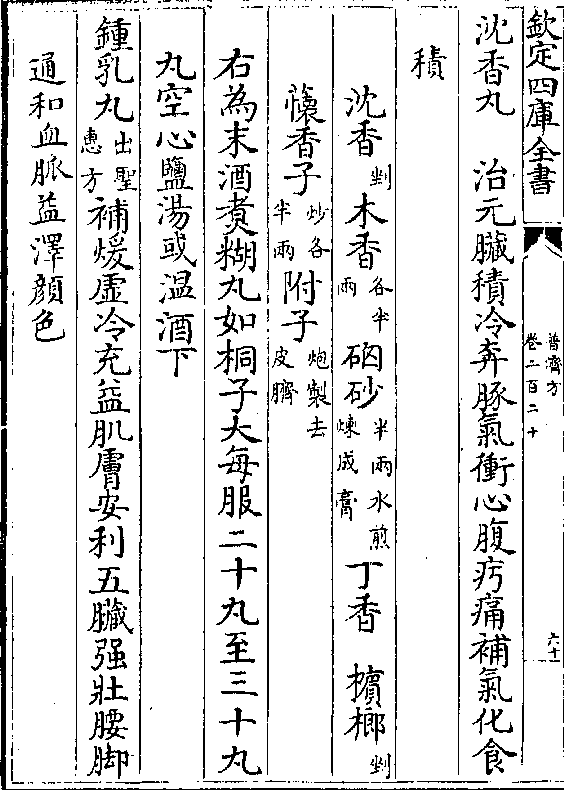 欽定四庫全書
普濟方
卷二百二十
六十
沈香丸　治元臟積冷奔豚氣衝心腹疞痛補氣化食
積
沈香剉木香各半兩硇砂半兩水煎煉成膏丁香　檳榔剉
懷香子炒各半兩附子炮製去皮臍
右為末酒煑糊丸如桐子大每服二十丸至三十丸
丸空心鹽湯或温酒下
鍾乳丸出聖惠方補煖虛冷充益肌膚安利五臟强壯腰脚
通和血脈益澤顔色